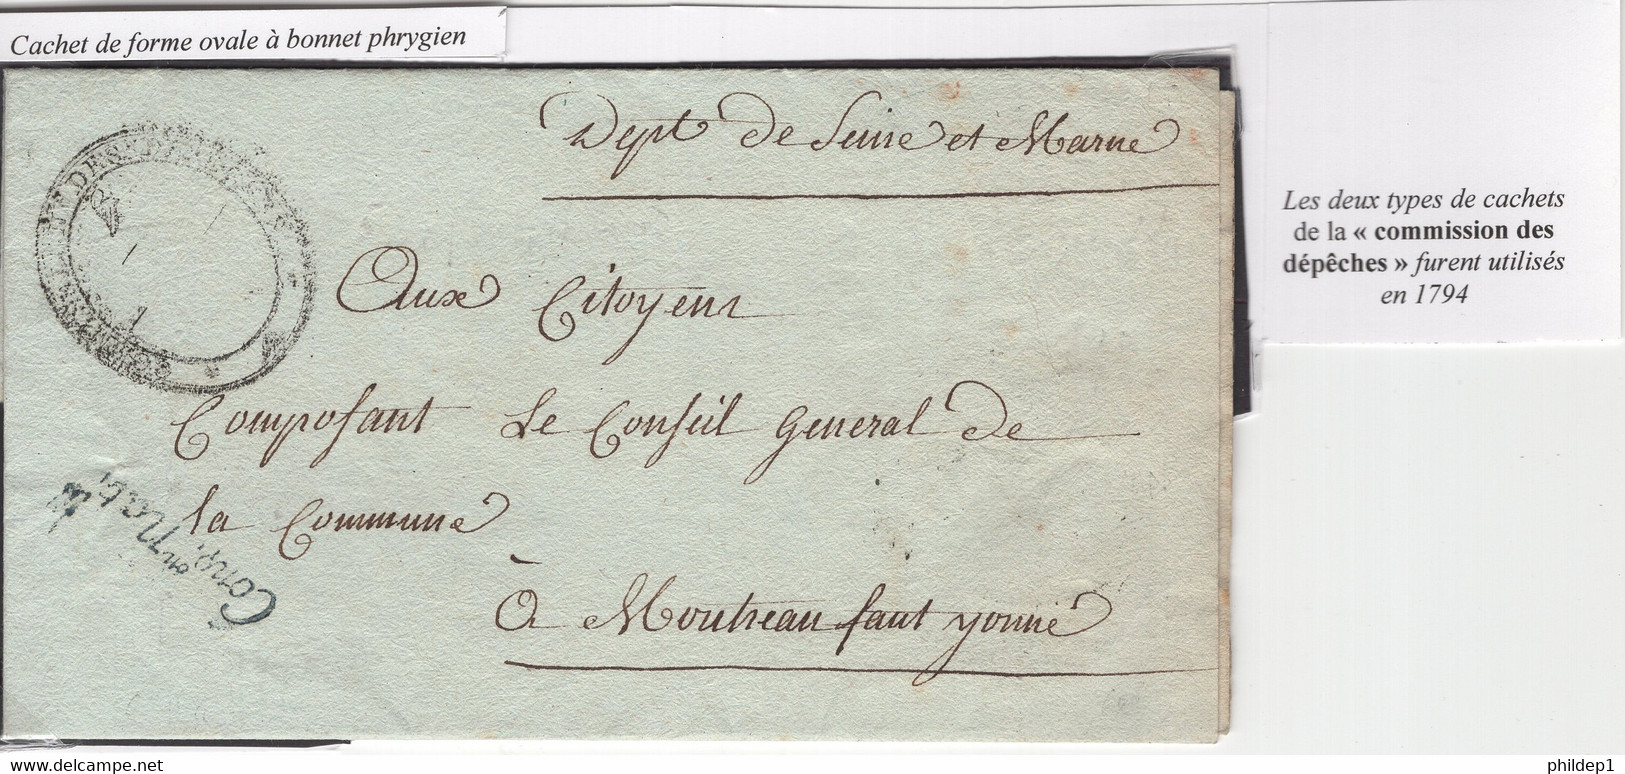 Cachet de forme ovale à bonnet phrygien
Dept de Seine et Marne
Les deux types de cachets
de la « commission des
dépêches » furent utilisés
en 1794
Aux Citoyens
Composant Le Conseil General de
la Commune
à Montreau faut yonne
DES
www.delcampe.net
phildep1